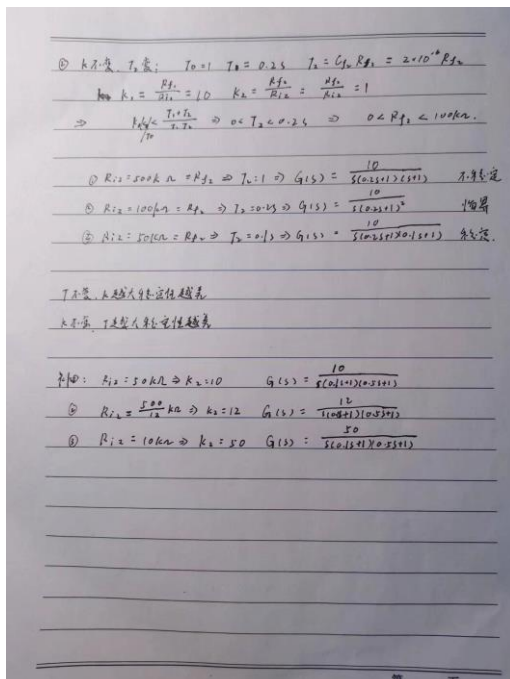 ② K不变，T₂变： T₀=1 T₁=0.2s T₂=Cf₂Rf₂=2×10⁻⁶Rf₂
K₁=Rf₁/Ri₁=10 K₂=Rf₂/Ri₂= =1
⇒ (T₁+T₂)/(T₁T₂) ⇒ 0<T₂<0.2s ⇒ 0<Rf₂<100kΩ.
① Ri2=500kΩ=Rf₂⇒T₂=1⇒G(s)=10/(s(0.2s+1)(s+1)) 不稳定
② Ri2=100kΩ=Rf₂⇒T₂=0.2s⇒G(s)=10/(s(0.2s+1)²) 临界
③ Ri2=50kΩ=Rf₂⇒T₂=0.1s⇒G(s)=10/(s(0.2s+1)(0.1s+1)) 稳定.
T不变，K越大稳定性越差
K不变，T越大稳定性越差
Ri2=50kΩ⇒K₂=10 G(s)=10/(s(0.1s+1)(0.5s+1))
② Ri2=500/12kΩ⇒K₂=12 G(s)=12/(s(0.1s+1)(0.5s+1))
③ Ri2=10kΩ⇒K₂=50 G(s)=50/(s(0.1s+1)(0.5s+1))